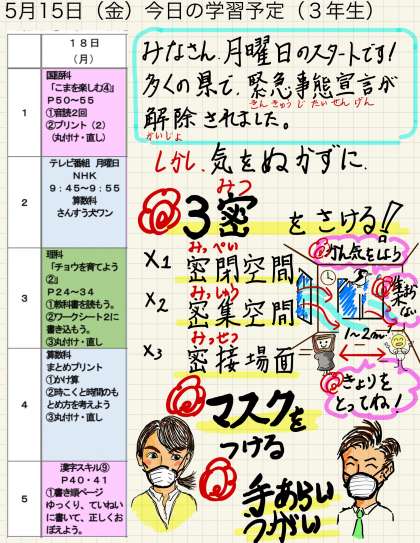 5月15日（金）今日の学習予定（３年生）
１８日
（月）
1
国語科
「こまを楽しむ④」
Ｐ５０～５５
①音読２回
②プリント（２）
（丸付け・直し）
2
テレビ番組　月曜日
ＮＨＫ
９：４５～９：５５
算数科
さんすう犬ワン
3
理科
「チョウを育てよう
②」
Ｐ２４～３４
①教科書を読もう。
②ワークシート２に
書き込もう。
③丸付け・直し
4
算数科
まとめプリント
①かけ算
②時こくと時間のも
とめ方を考えよう
③丸付け・直し
5
漢字スキル⑨
Ｐ４０・４１
①書き順ページ
ゆっくり、ていねい
に書いて、正しくお
ぼえよう。
みなさん、月曜日のスタートです！
多くの県で、緊急事態宣言が
きんきゅうじたいせんげん
解除されました。
かいじょ
しかし、気をぬかずに、
みつ
3密をさける!!
みっぺい
×1 密閉空間
みっしゅう
×2 密集空間
みっせつ
×3 密接場面
かん気をしよう
集まらない
1～2m
きょりを
とってね！
マスクを
つける
手あらい
うがい